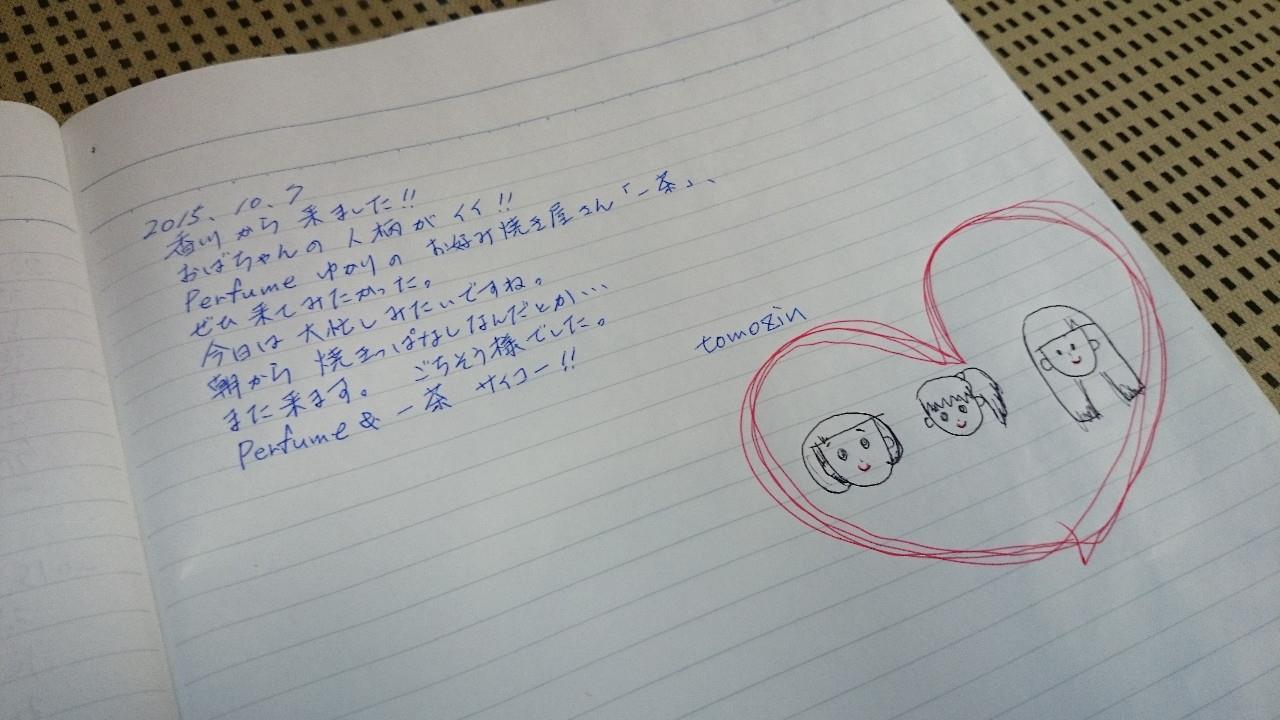 2015. 10. 7
香川から来ました!!
おばちゃんの人柄がイイ!!
Perfume ゆかりの お好み焼き屋さん「一茶」、
ぜひ来てみたかった。
今日は大忙しみたいですね。
朝から焼きっぱなしなんだとか…
また来ます。 ごちそう様でした。
Perfume & 一茶 サイコー!!
tomozin